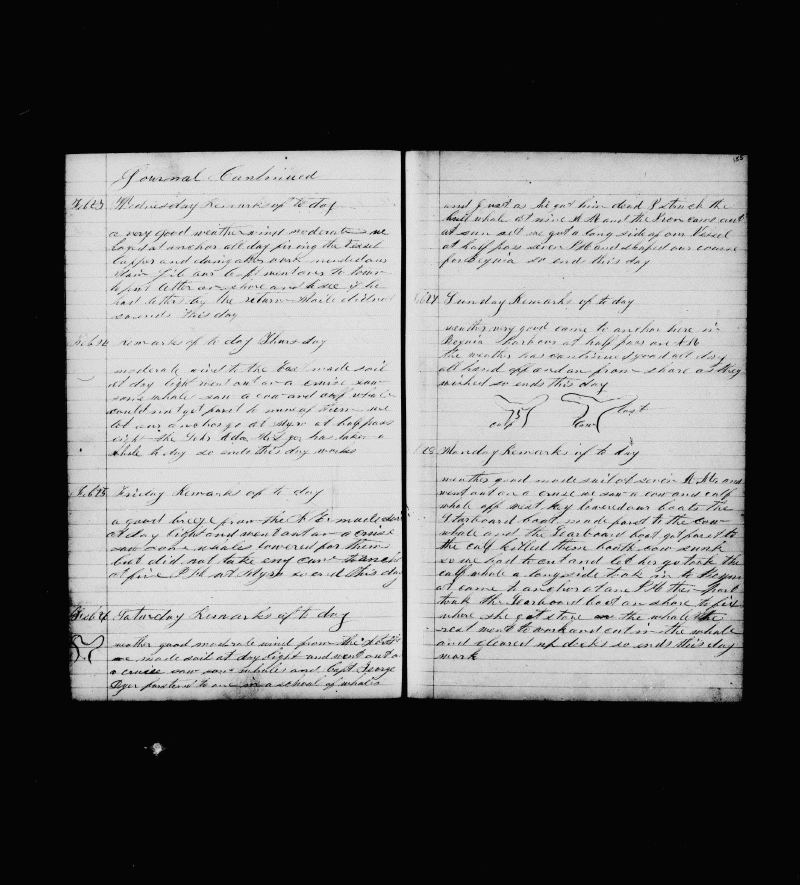 Journal Continued
Feb 23 Wednesday Remarks of to day
a very good weather wind moderate we
layed at anchor all day fixing the Vessel
Copper and doing other work
to town
to put letter on shore and to see if he
had letters by the return Maile did not
so ends this day
Feb 24 remarks of to day Thursday
moderate wind to the East made sail
at day light went out on a cruise saw
some whale saw a cow and calf whale
could not get farst to none of them we
let our anchor go at at half pass
eight the Schr Ada has taken a
whole to day so ends this day works
Feb 25 Friday Remarks of to day
a good breeze from the N E made sail
at day light and went out on a cruise
saw some whales lowered for them
but did not take eny came to anchor
at five P M at so end this day
Feb 26 Saturday Remarks of to day
weather good moderate wind from the
we made sail at day light and went out on
a cruise saw some whales and Capt George
farstend to one in a school of whales
185
and just as he got him dead I struck the
bull whale at nine A M and the Iron came out
at sun set we got a long side of our Vessel
at half pass seven P M and shaped our course
for Bequia so ends this day
Sunday Remarks of to day
weather very good came to anchor here in
Bequia Harbour at half pass one A M
the weather has continued good all day
all hand off and on from shore as they
wished so ends this day
calf 75 cow lost
Monday Remarks of to day
weather good made sail at seven A M and
went out on a cruise we saw a cow and calf
whale off west key lowered our boats the
Starboard boat made farst to the cow
whale and the Larboard boat got farst to
the calf killed them booth cow sunk
so we had to cut and let her go took the
calf whale a long side took in to Bequia
at came to anchor at P M then part
took the Larboard boat on shore to fix
where she got stove on the whale the
rest went to work and cut in the whale
and cleared up decks so ends this day
work